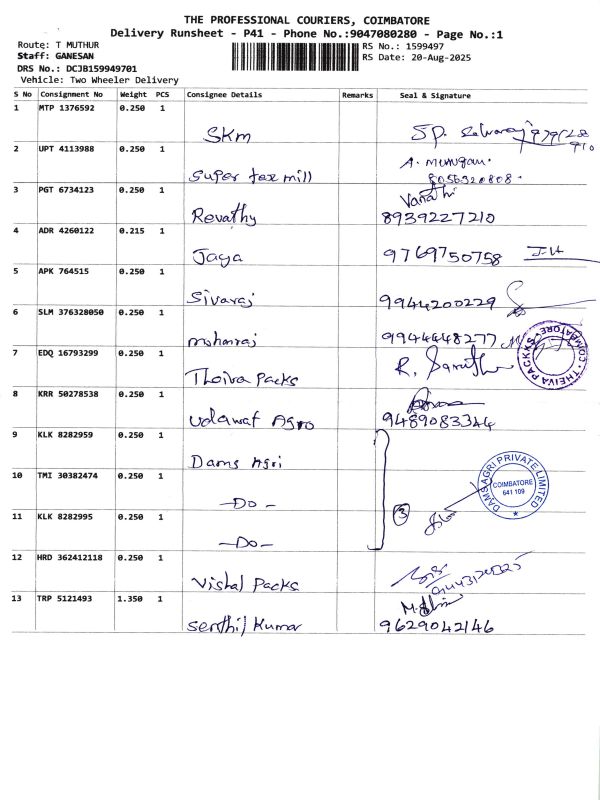 THE PROFESSIONAL COURIERS, COIMBATORE
Delivery Runsheet - P41 - Phone No.:9047080280 - Page No.:1
Route: T MUTHUR
RS No.: 1599497
Staff: GANESAN
RS Date: 20-Aug-2025
DRS No.: DCJB159949701
Vehicle: Two Wheeler Delivery
S No Consignment No Weight PCS Consignee Details Remarks Seal & Signature
1 MTP 1376592 0.250 1
SKM SP. Selvaraj
2 UPT 4113988 0.250 1
Super tex mill A. Murugan. 8056320808.
3 PGT 6734123 0.250 1
Revathy Vanathi 8939227210
4 ADR 4260122 0.215 1
Jaya 9769750758
5 APK 764515 0.250 1
Sivaraj 9944200229
6 SLM 376328050 0.250 1
mohanraj 9944448277
7 EDQ 16793299 0.250 1
Theiva Packs R.
THEIVA PACKKS * COIMBATORE *
8 KRR 50278538 0.250 1
Udawat Agro 9489083344
9 KLK 8282959 0.250 1
Dams Agri
10 TMI 30382474 0.250 1
-Do-
DAMS AGRI PRIVATE LIMITED
COIMBATORE
641 109
11 KLK 8282995 0.250 1
-Do- 3
12 HRD 362412118 0.250 1
Vishal Packs
13 TRP 5121493 1.350 1
Senthil Kumar 9629042146